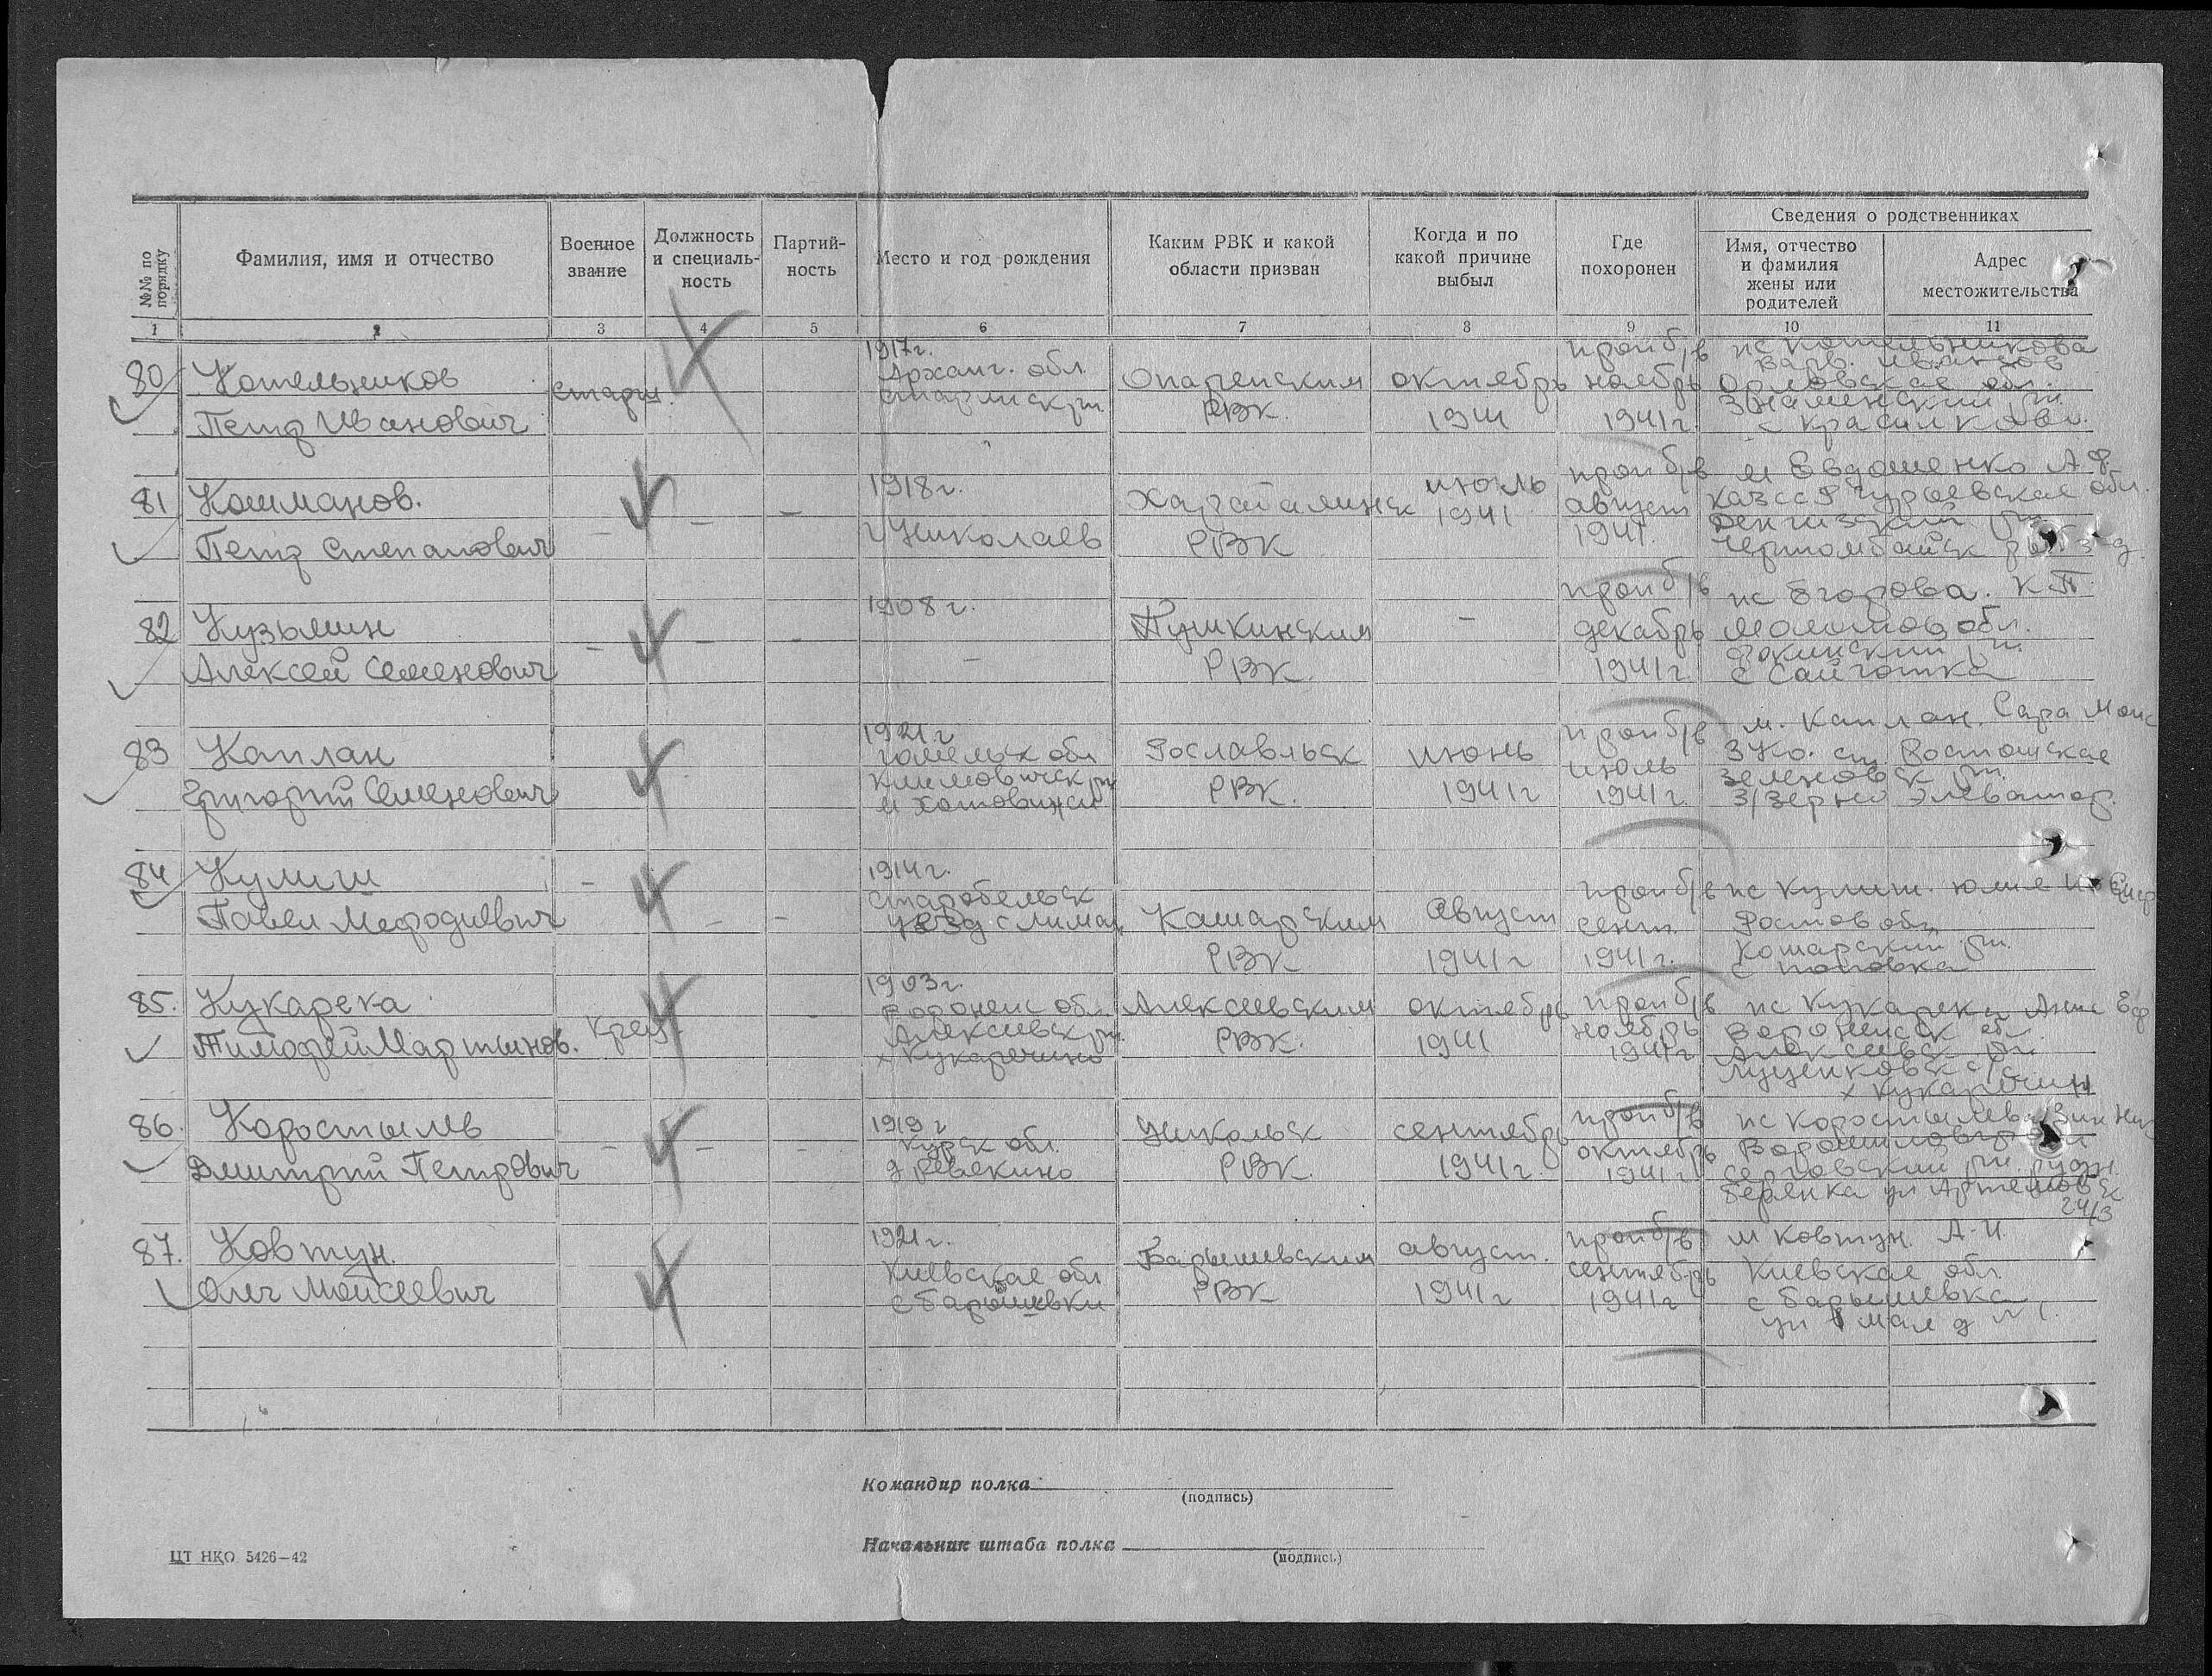 Сведения о родственниках
№№ по порядку
Фамилия, имя и отчество
Военное звание
Должность и специаль-ность
Партий-ность
Место и год рождения
Каким РВК и какой области призван
Когда и по какой причине выбыл
Где похоронен
Имя, отчество и фамилия жены или родителей
Адрес местожительства
1 2 3 4 5 6 7 8 9 10 11
80 Котельников
Петр Иванович
старш.
1917г.
Арханг. обл
Опаренским
РВК.
октябрь
1941
проп б/в
ноябрь
1941г.
жс Котельникова
Варв.
Орловская обл.
Знаменский рн
81 Кошманов.
Петр Степанович
1918г.
г Николаев
РВК
июль
1941
проп б/в
август
1941.
м Евдошенко А Ф
КазССР Гурьевская обл.
Денгизский рн
82 Кузьмин
Алексей Семенович
1908 г.
Пушкинским
РВК.
проп б/в
декабрь
1941г.
жс Егорова. К П
Молотов обл.
Фокинский рн
с Сайгатка
83 Каплан
Григорий Семенович
1921г
гомельск обл
Климовичск рн
Рославльск
РВК.
июнь
1941г
проп б/в
июль
1941г.
м. Каплан. Сара Моис
ЗКО. ст.
Зеленовск рн.
З/зерно Элеватор.
84 Кулиш
Павел Мефодиевич
1914г.
Старобельск
уезд с Лиман
Кашарским
РВК
Август
1941г
проп б/в
сент.
1941г.
жс Кулиш.
Ростов обл
Кошарский рн.
с Поповка
85. Кукарека
Тимофей Мартынов.
Кра
1903г.
Воронеж обл
Алексеевск рн.
х Кукаречино
Алексеевским
РВК.
октябрь
1941
проп б/в
ноябрь
1941г
жс Кукарека
Воронежск обл
Алексеевск рн
Луценковск с/с
х Кукаречин
86. Коростылев
Дмитрий Петрович
1919г
Курск обл.
д Ревякино
Никольск
РВК.
сентябрь
1941г.
проп б/в
октябрь
1941г
жс Коростылева
Ворошиловгр
Серговский рн. рудн.
24/3
87. Ковтун.
Олег Моисеевич
1921г.
Киевская обл
с Барышевки
Барышевским
РВК
август.
1941г
проп б/в
сентябрь
1941г
м Ковтун. А-И.
Киевская обл.
с Барышевка
Командир полка
(подпись)
Начальник штаба полка
(подпись)
ЦТ НКО 5426—42